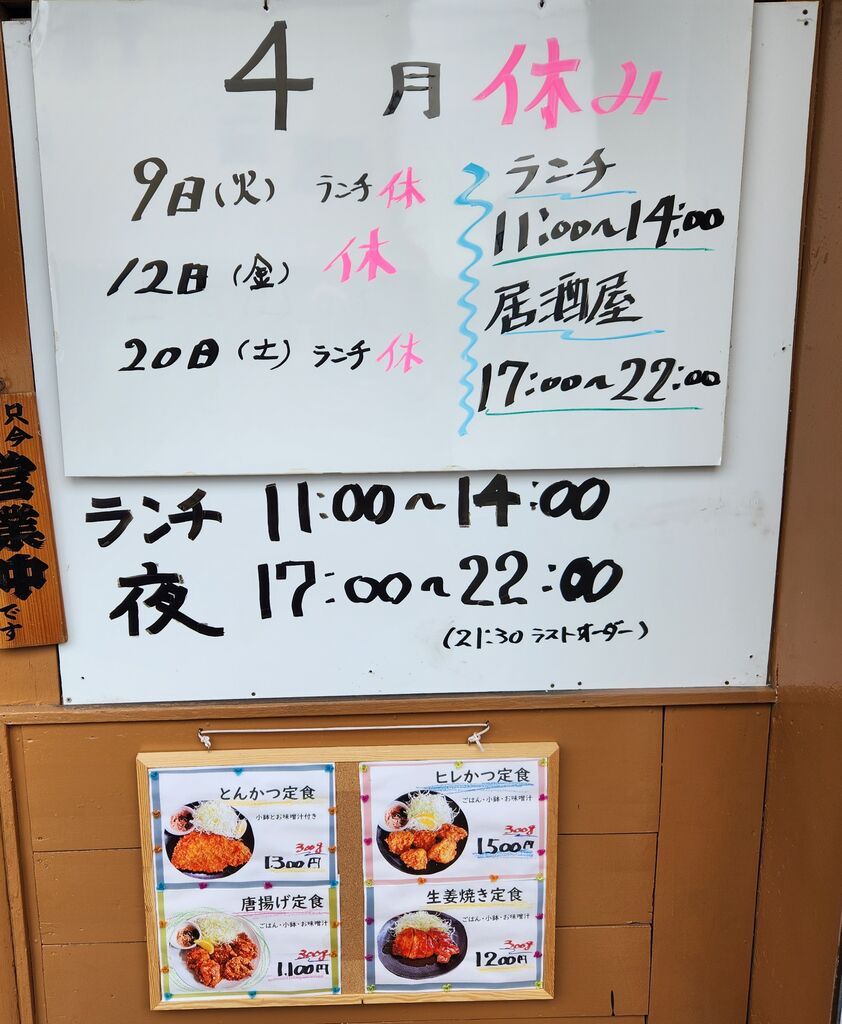 4月 休み
9日(火) ランチ 休
12日(金) 休
20日(土) ランチ 休
ランチ
11:00~14:00
居酒屋
17:00~22:00
ランチ 11:00~14:00
夜 17:00~22:00
(21:30 ラストオーダー)
只今
営業中
です
とんかつ定食
小鉢とお味噌汁付き
300g
1300円
ヒレかつ定食
ごはん・小鉢・お味噌汁
300g
1500円
唐揚げ定食
ごはん・小鉢・お味噌汁
300g
1,100円
生姜焼き定食
ごはん・小鉢・お味噌汁
300g
1200円